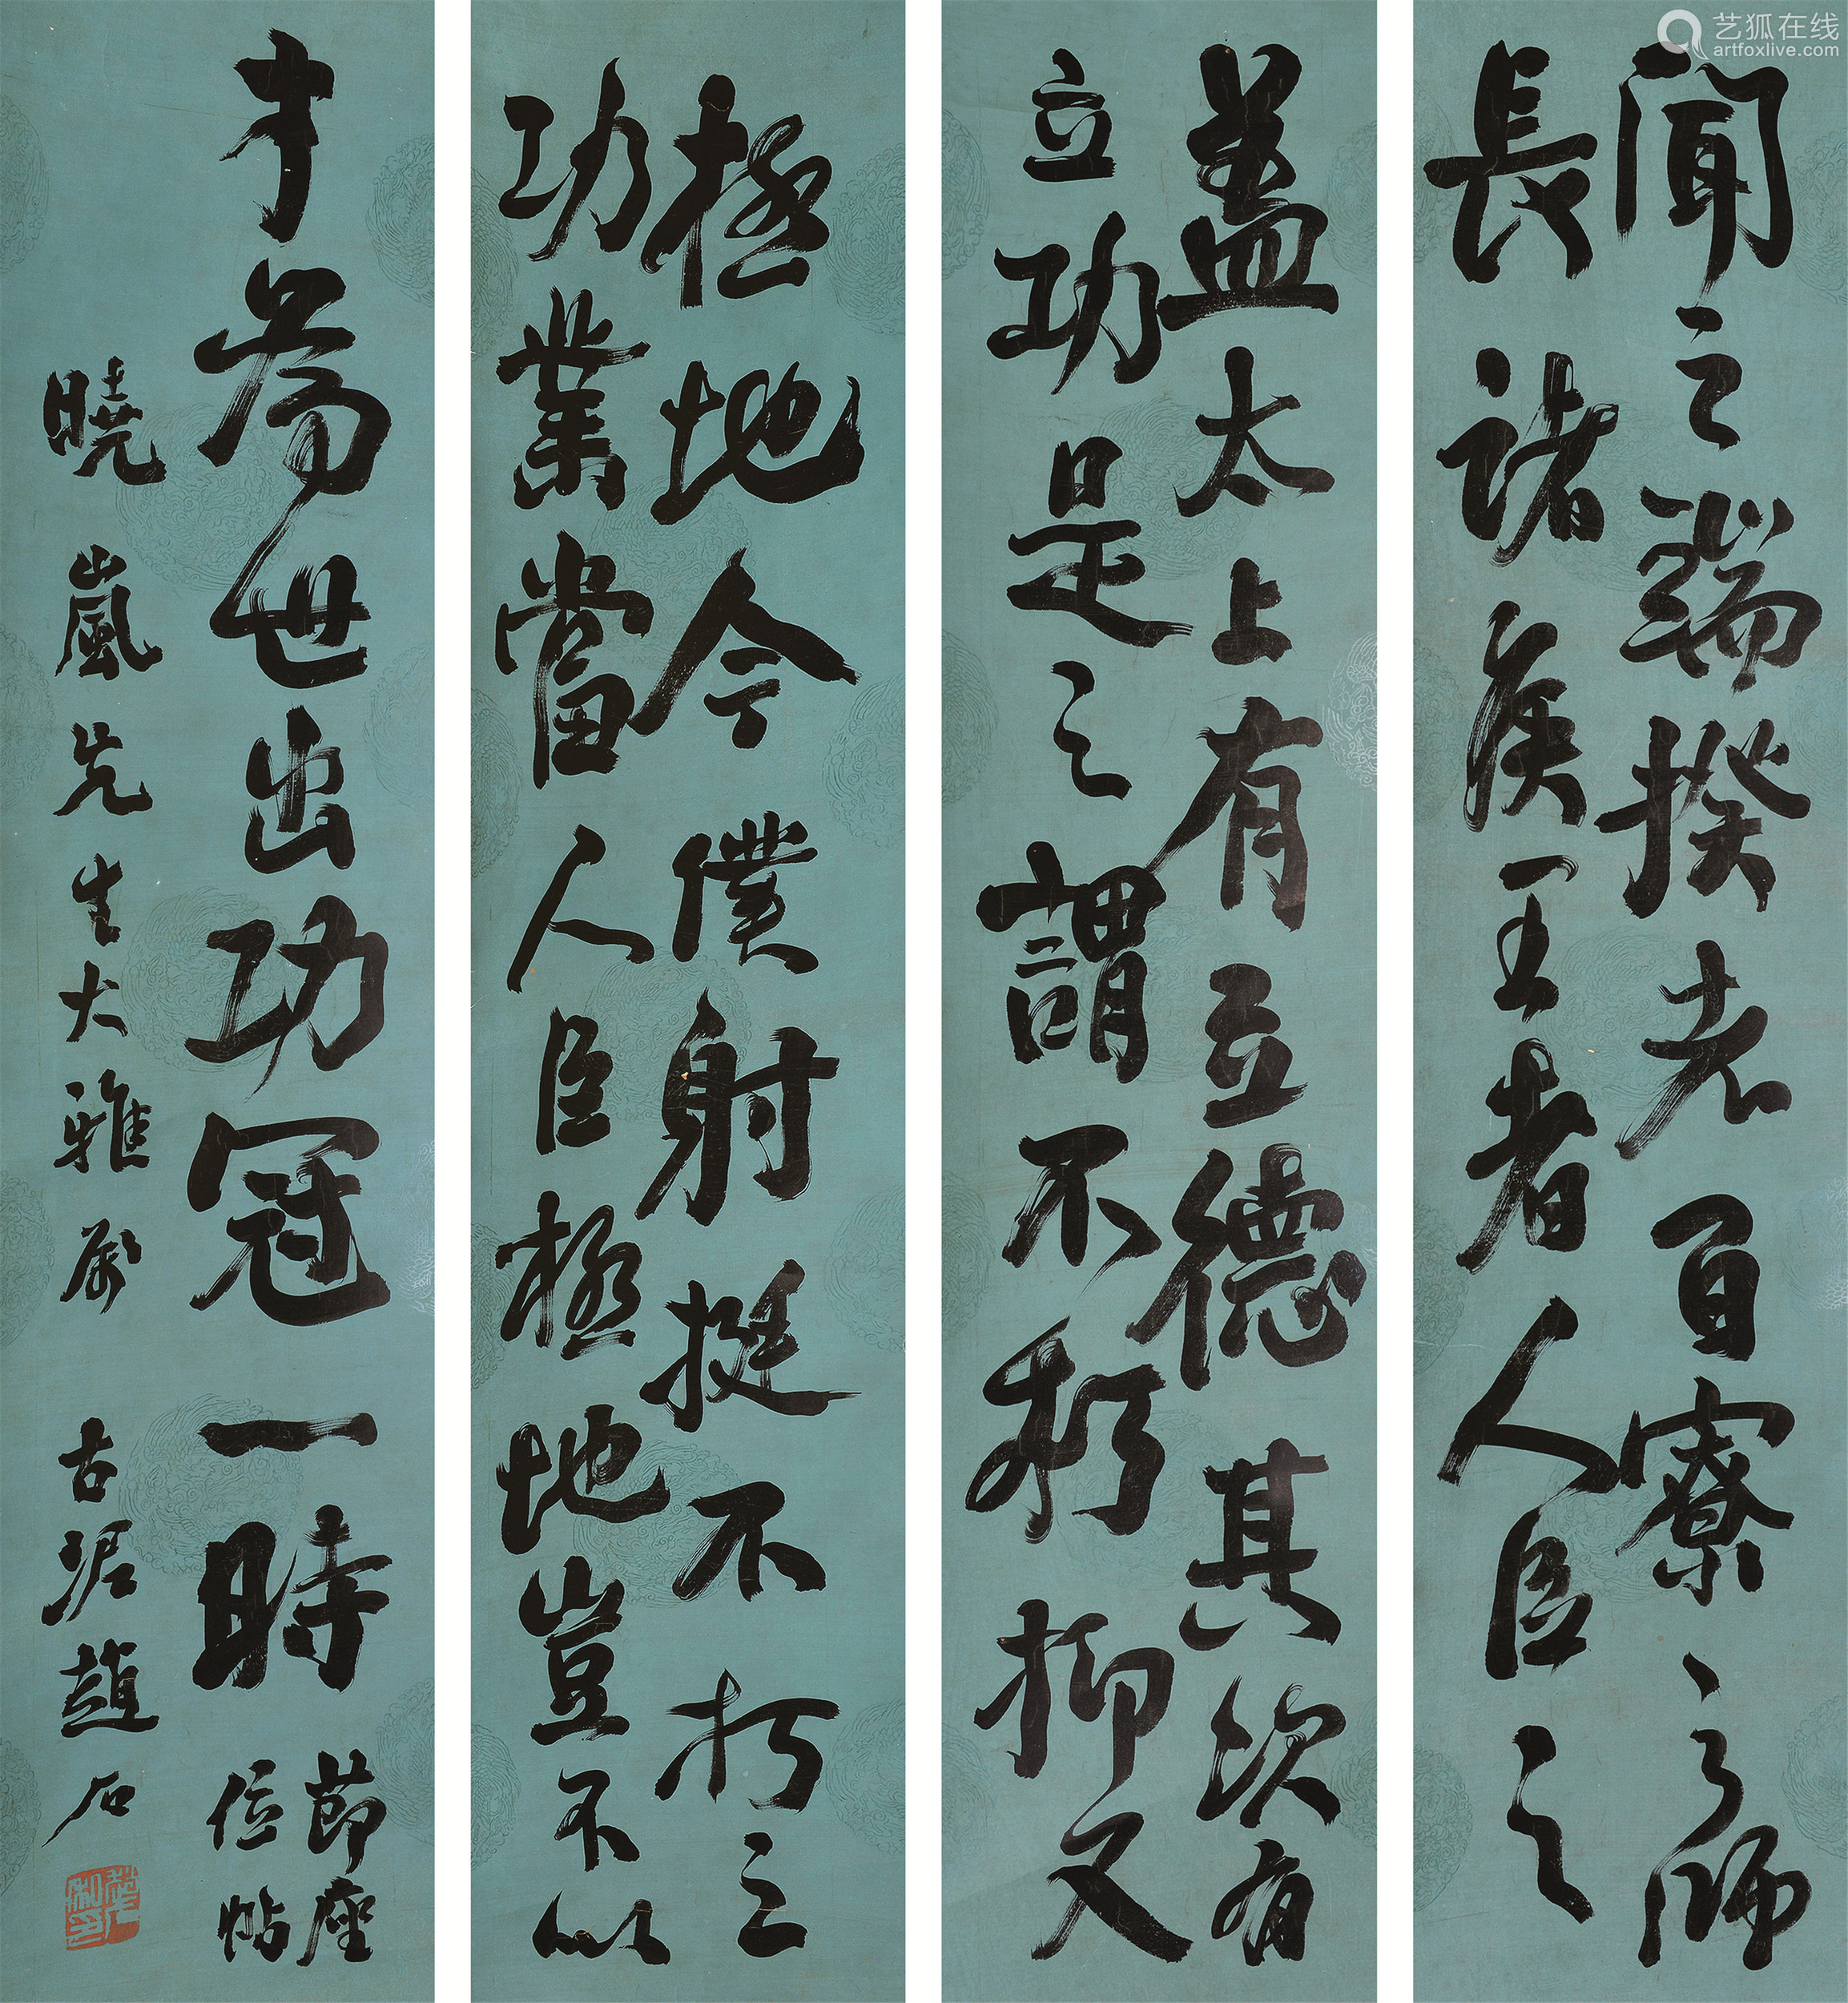 艺狐在线
artfoxlive.com
聞之端揆者百寮之師
長諸侯王者人臣之
蓋太上有立德其次有
立功是之謂不朽抑又
極地今僕射挺不朽之
功業當人臣極地豈不以
才為世出功冠一時
節座
位帖
曉嵐先生大雅屬 古泥趙石
趙石私印